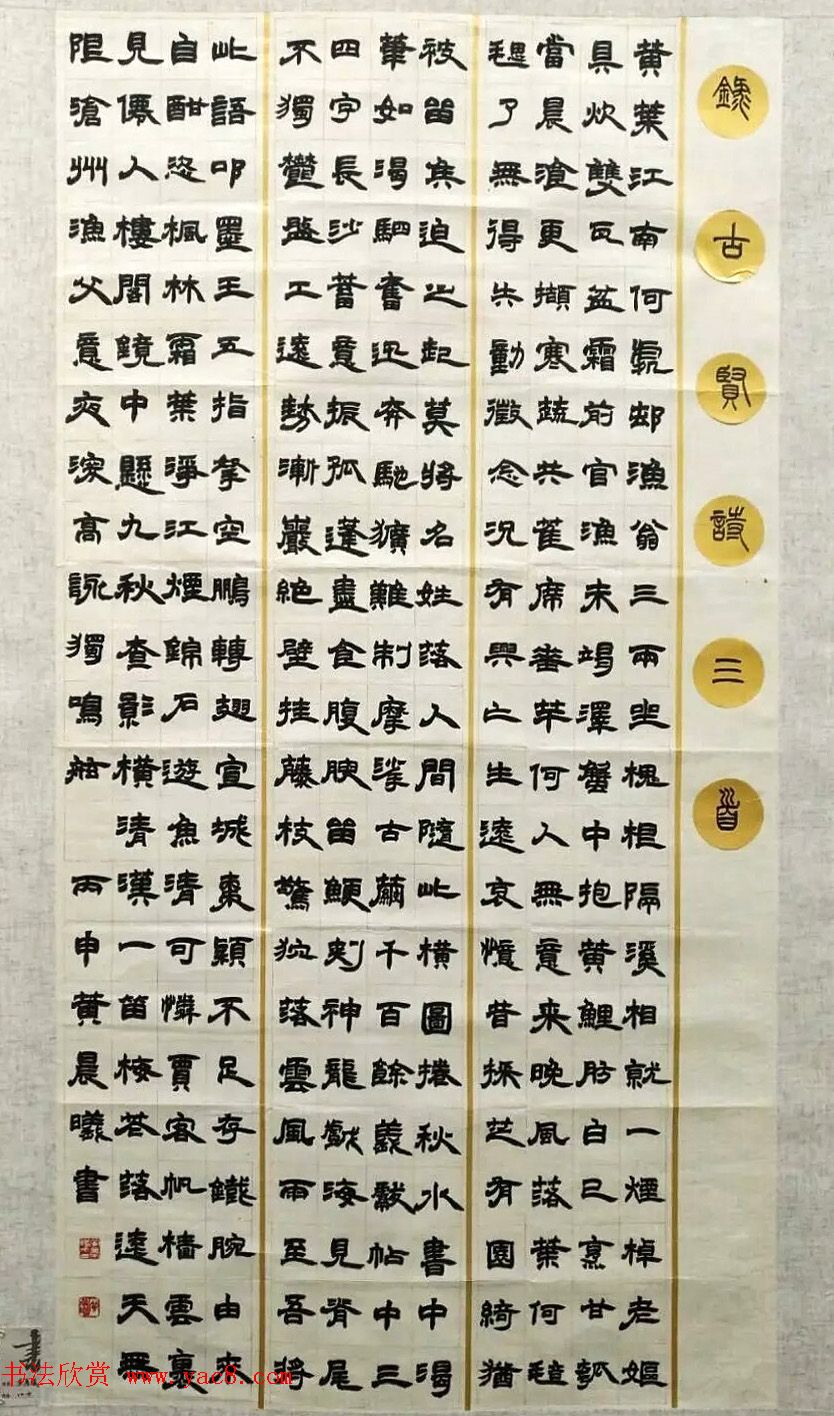 錄古賢詩三首
黃葉江南何處邨漁翁三兩坐槐根隔溪相就一煙棹老嫗
具炊雙瓦盆霜前官漁未竭澤蟹中抱黃鯉肪白已烹甘瓠
當晨飡更擷寒蔬共萑席番芋何人無意來晚風落葉何毰
毸了無得失動微念況有興亡生遠哀憶昔採芝有園綺猶
被留矦迫之起莫將名姓落人間隨此橫圖捲秋水書中渴
筆如渴駟奮迅奔馳獷難制摩挲古繭千百餘羲獻帖中三
四字長沙蓄意振孤蓬盡食腹腴留鯁刺神龍戲海見脊尾
不獨鬱盤工遠勢漸巖絕壁挂藤枝驚狖落雲風雨至吾將
此語叩墨王五指拏空鵬轉翅宣城棗穎不足存鐵腕由來
自酣恣楓林霜葉淨江煙錦石遊魚清可憐賈客帆檣雲裏
見僊人樓閣鏡中懸九秋查影橫清漢一笛梅花落遠天無
限滄州漁父意夜深高詠獨鳴舷 丙申黃晨曦書
书法欣赏 www.yac8.com